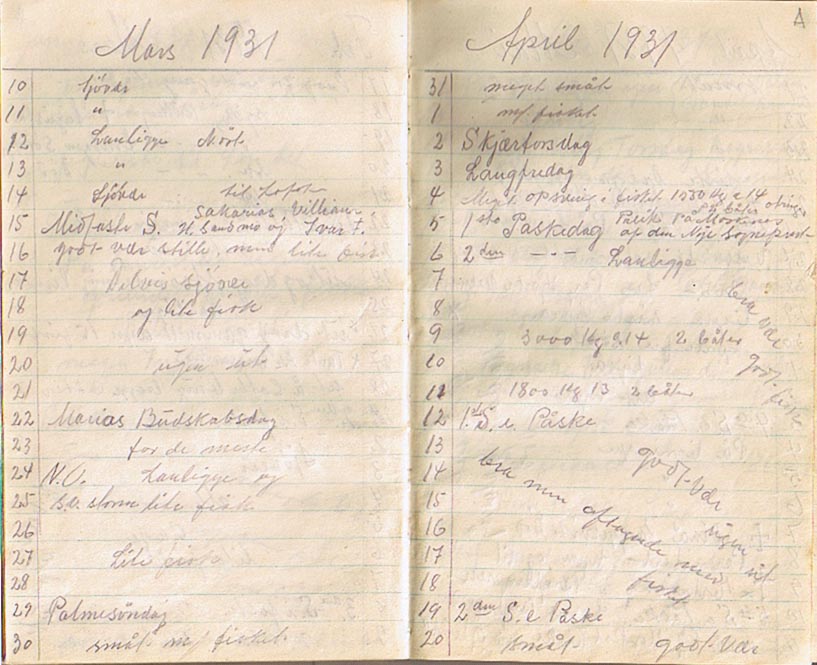 Mars 1931
10 Sjövær
11 "
12 Landligge Nörd
13 "
14 Sjövær til
15 Midfaste S. Sakarias, Villiam
H. Sandmo og Ivar F.
16 godt vær stille, men lite fisk
17 Delvis sjövær
18 og lite fisk
19
20 ugen ut
21
22 Marias Budskabsdag
23 for de meste
24 N.O. Landligge og
25 s.v. storm lite fisk
26
27 Lite fisk
28
29 Palmesöndag
30 småt m/ fisket
4
April 1931
31 meget småt
1 m/ fisket
2 Skjærtorsdag
3 Langfredag
4 opsving i fisket 1550 kg a 14
5 1ste Påskedag på
af den Nye Sogneprest
6 2den —"— Landligge
7
8
9 3000 kg a 14 2 båter
10
11 1800 kg 13 2 båter
bra vær
godt fiske
12 1ste S. e Påske
13
14
15
16
17
18
godt Vær
ugen ut
bra men aftagende med
fisket
19 2den S. e Påske
20 smått godt Vær